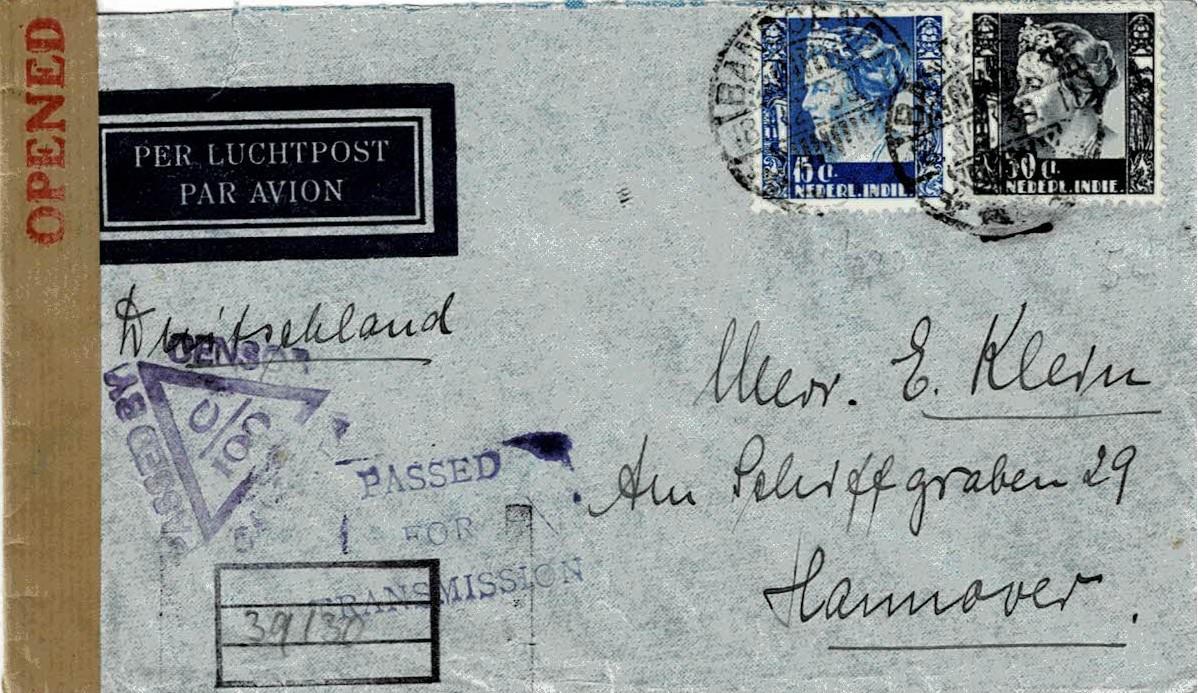 OPENED
PER LUCHTPOST
PAR AVION
15 ct.
NEDERL. INDIE.
50 ct.
NEDERL. INDIE.
Duitschland
Mevr. E. Klein
Am Schiffgraben 29
Hannover.
PASSED BY
CENSOR
C/100
PASSED
FOR
TRANSMISSION
39/30